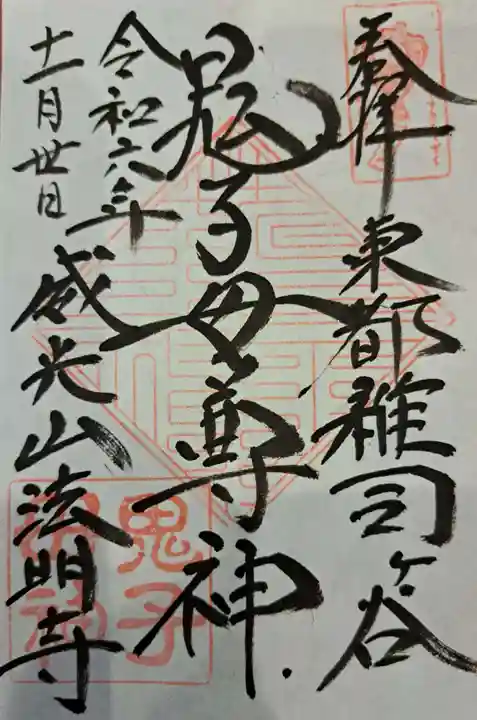 奉拝
東都雑司ヶ谷
鬼子母尊神
令和六年
十一月卅日
威光山法明寺
鬼子
母神